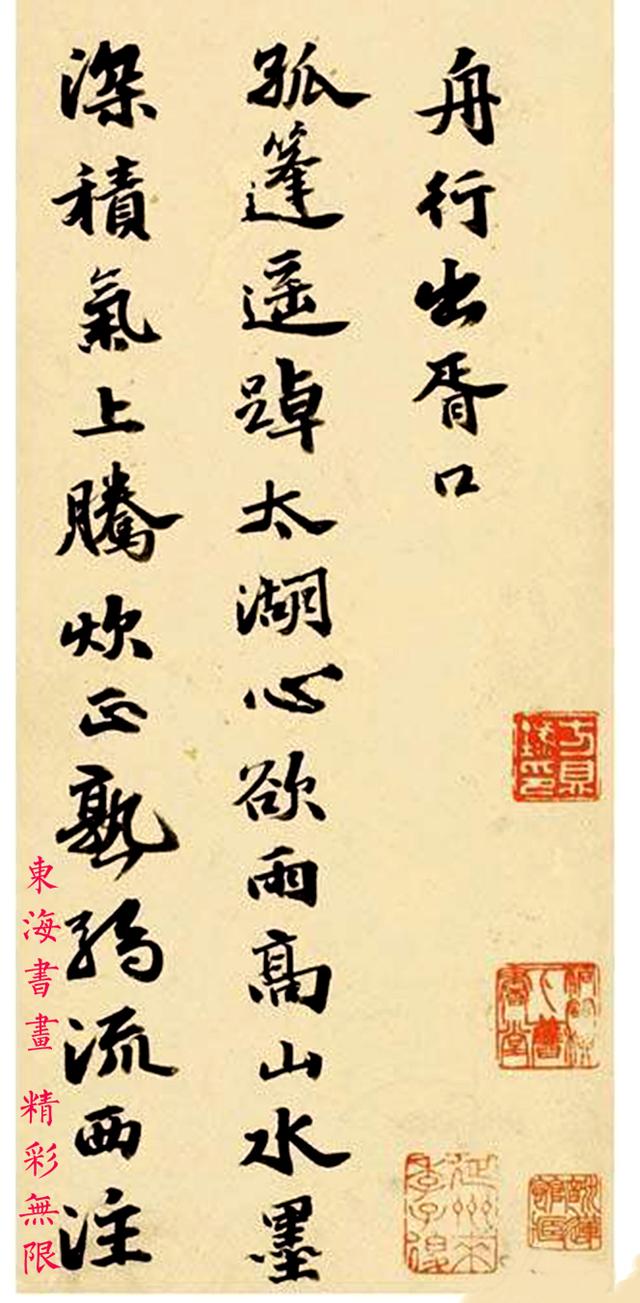 舟行出胥口
孤篷遥踔太湖心欲雨高山水墨
深積氣上騰炊正熟弱流西注
東海書畫 精彩無限